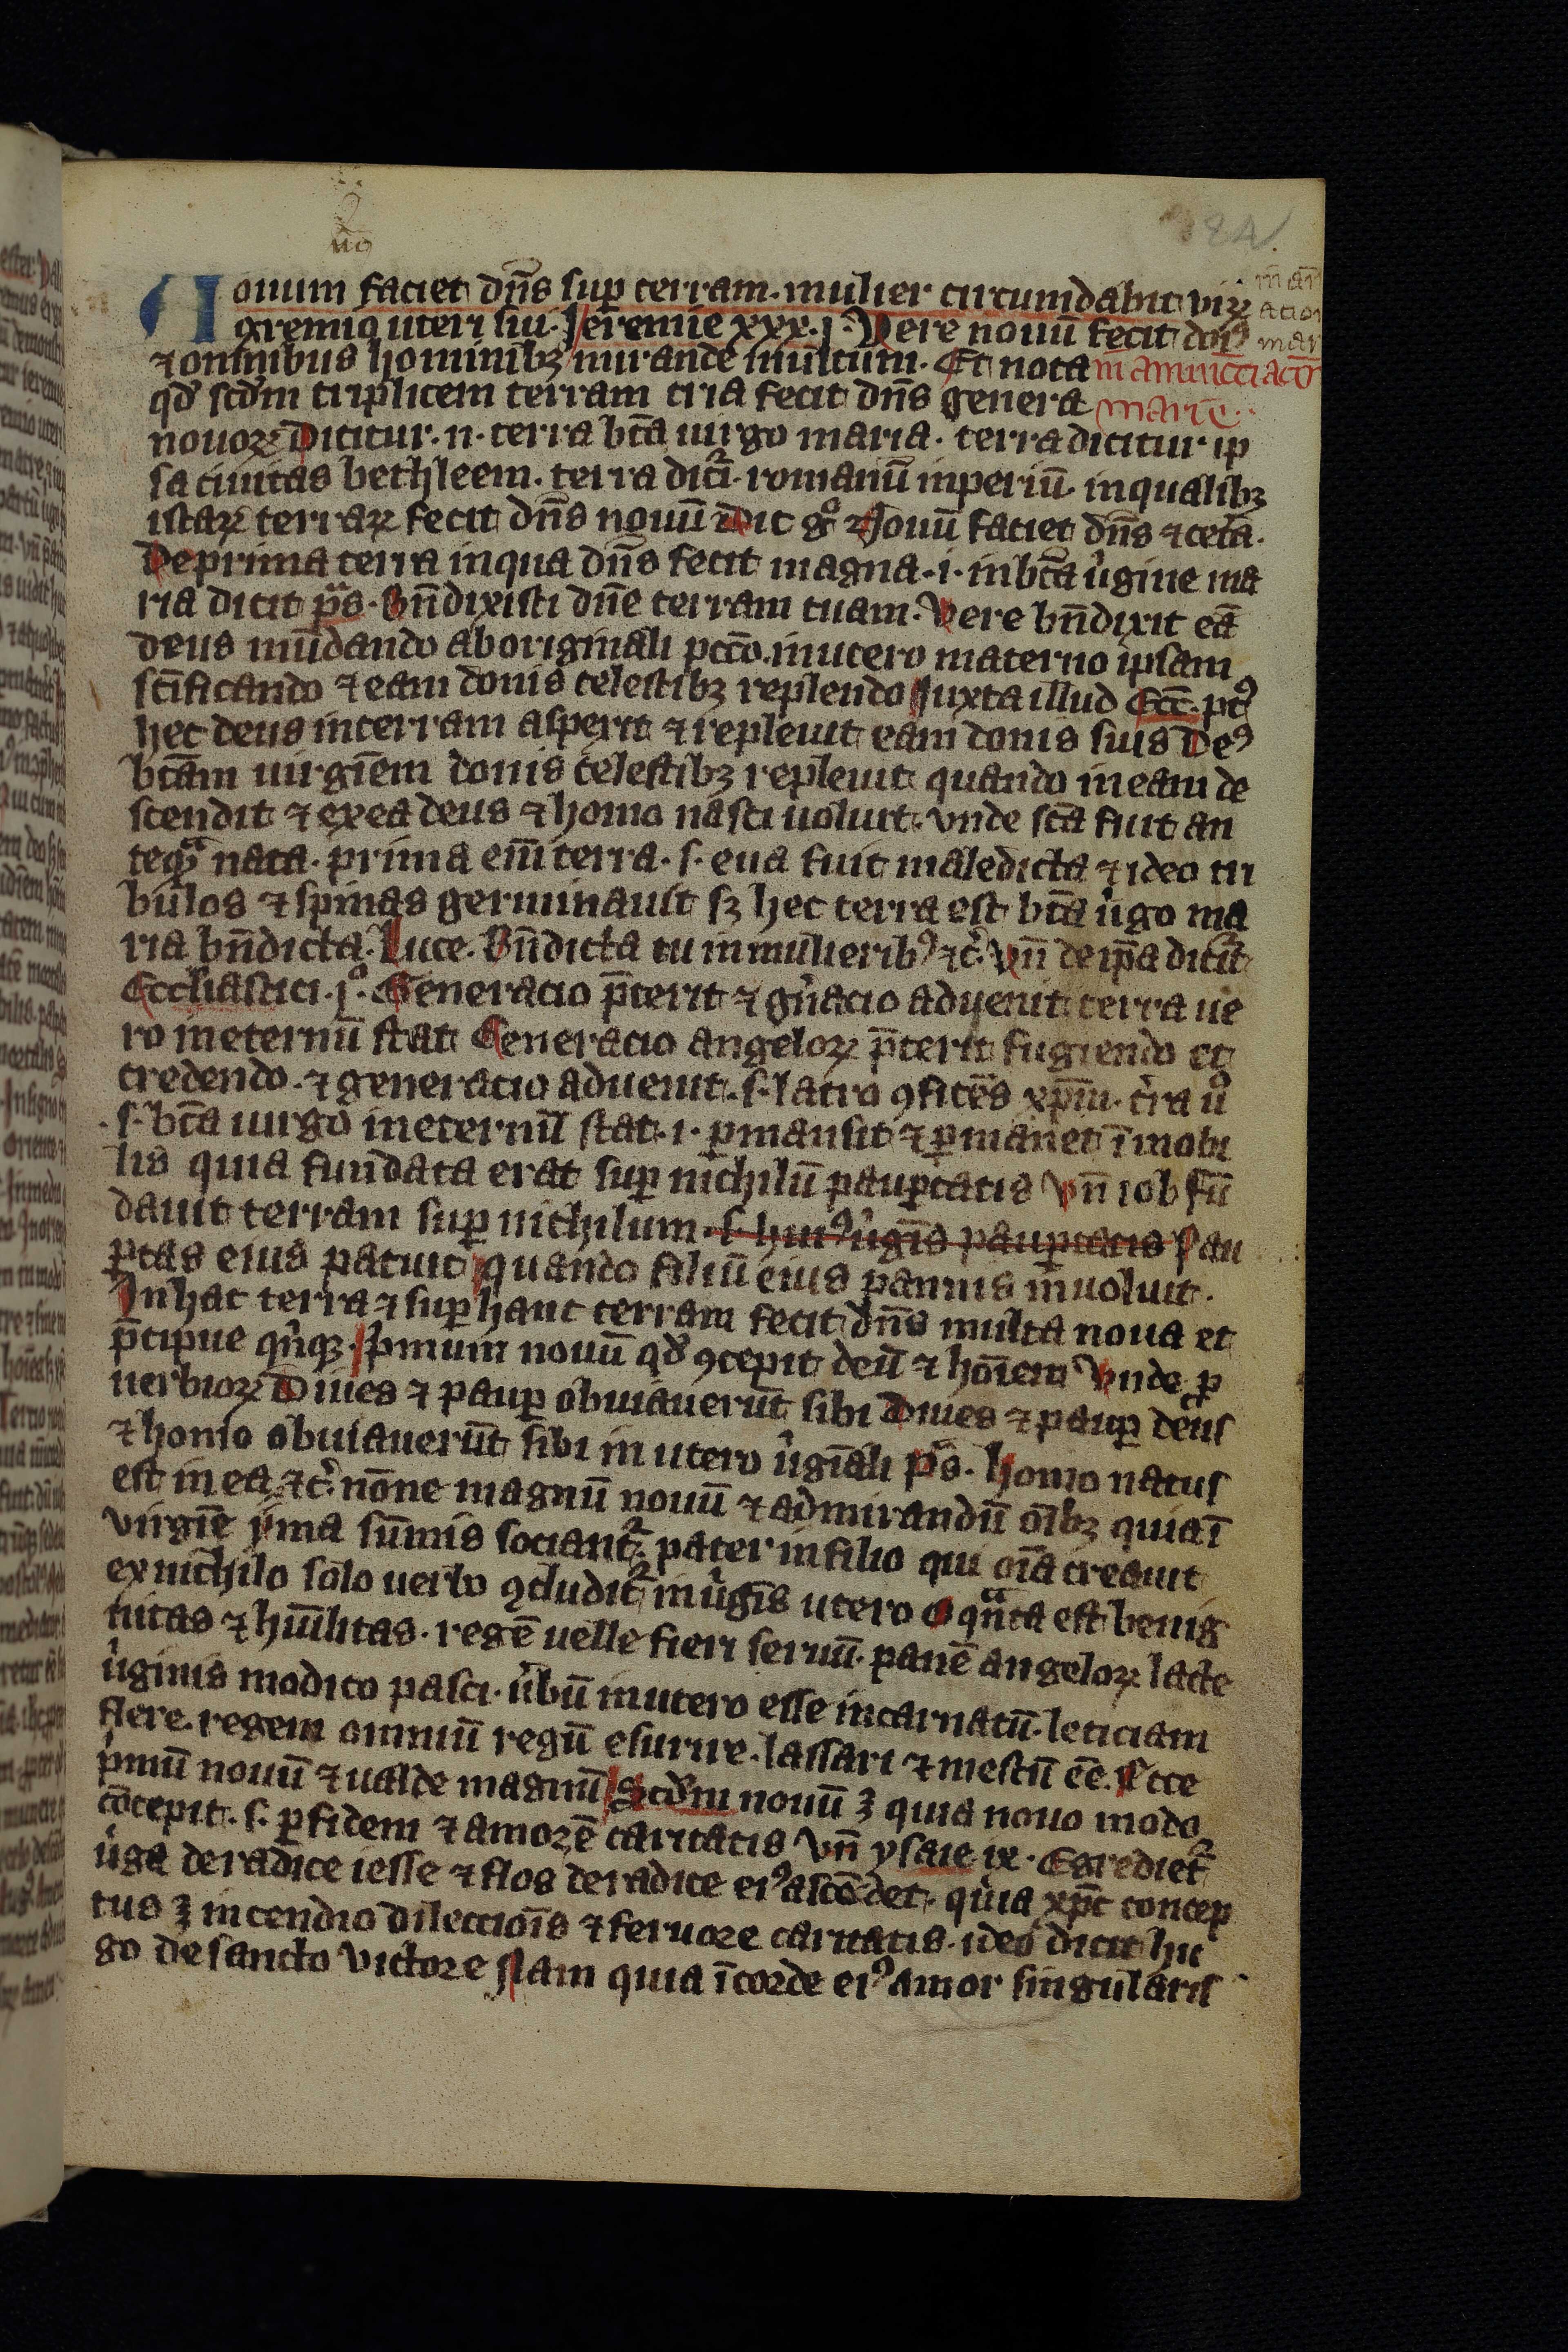 Nouum faciet dn̄s suꝑ terram. mulier circumdabit viꝝ
gremio uteri sui. Jeremie xxx.j. Vere nouū fecit dn̄s
⁊ omnibus hominibꝫ mirande multum. Et nota
qd̓ scd̓m triplicem terram tria fecit dn̄s genera
nouoꝝ Dicitur .n. terra bt̄a uirgo maria. terra dicitur ip
sa ciuitas bethleem. terra dicit᷑ romanū inperiū. in qualibꝫ
istaꝝ terraꝝ fecit dn̄s nouū Dic gͦ Nouū faciet dn̄s ⁊ ceta.
De prima terra in qua dn̄s fecit magna .i. in bt̄a u̓gine ma
ria dicit pͣs. Bn̄dixisti dn̄e terram tuam. Vere bn̄dixit eā
deus mūdando ab originali pcc̄o. in utero materno ipsam
sc̄ificando ⁊ eam donis celestibꝫ replendo Juxta illud Ecc̄. ptꝰ
hec deus in terram asperit ⁊ repleuit eam donis suis Deꝰ
bt̄am uirgīem donis celestibꝫ repleuit quando in eam de
scendit ⁊ ex ea deus ⁊ homo nasci uoluit. vnde sc̄a fuit an
teqͣ nata. prima em̄ terra .s. eua fuit maledicta ⁊ ideo tri
bulos ⁊ spinas germinauit sꝫ hec terra est bt̄a u̓go ma
ria bn̄dicta. Luce. Bn̄dicta tu in mulieribꝰ ⁊c̓. Vn̄ de ip̄a dicit᷑
Eccl̓iastici .jͦ. Generacio p̄terit ⁊ gn̓acio aduenit terra ue
ro in eternū stat Generacio angeloꝝ p̄terit fugiendo et
credendo. ⁊ generacio aduenit .s. latro ꝯfitēs xp̄m. t̓ra uͦ
.s. bt̄a uirgo in eternū stat .i. ꝑmansit ⁊ ꝑmanet īmobi
lis quia fundata erat suꝑ nichilū pauꝑtatis Vn̄ iob fū
dauit terram suꝑ nichilum .s. huiꝰ u̓gīs pauꝑtatis Pau
ꝑtas eius patuit quando filiū eius pannis inuoluit.
In hac terra ⁊ suꝑ hanc terram fecit dn̄s multa noua et
p̄cipue qn̓qꝫ. P̓mum nouū qd̓ ꝯcepit deū ⁊ hoīem Vnde ꝓ
uerbioꝝ Diues ⁊ pauꝑ obuiauerūt sibi Diues ⁊ pauꝑ deus
⁊ homo obuiauerūt sibi in utero u̓gīali pͣs. homo natus
est in ea ⁊c̓. nōne magnū nouū ⁊ admirandū oībꝫ quia ī
virgīe yma sūmis sociant᷑. pater in filio qui oīa creauit
ex nichilo solo uerbo ꝯcludit᷑ in u̓gīs utero O qͣnta est benig
nitas ⁊ hūilitas. regē uelle fieri seruū. panē angeloꝝ lacte
u̓ginis modico pasci. u̓bū in utero esse incarnatū. leticiam
flere. regem omniū regū esurire. lassari ⁊ mestū eē. Ecce
p̓mū nouū ⁊ ualde magnū Scd̓m nouū ꝫ quia nouo modo
cōcepit .s. ꝑ fidem ⁊ amorē caritatis Vn̄ ysaie ix. Egrediet᷑
u̓ga de radice iesse ⁊ flos de radice eiꝰ ascēdet. quia xp̄c concep
tus ꝫ incendio dileccioīs ⁊ feruore caritatis. ideo dicit hu
go de sancto victore Nam quia ī corde eiꝰ amor singularis
in annūcciacōe
marie.